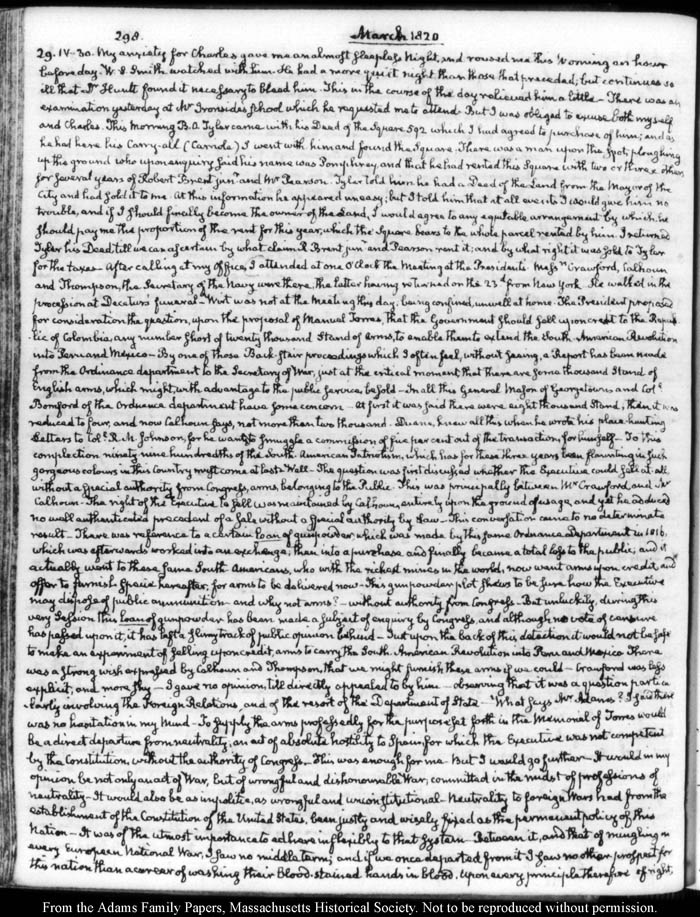 298.
March 1820
29. IV-30. My anxiety for Charles gave me an almost sleepless Night, and roused me this Morning an hour
before day. W. S. Smith watched with him. He had a more quiet night than those that preceded, but continues so
ill that Dr Huntt found it necessary to bleed him. This in the course of the day relieved him a little - There was an
examination yesterday at Mr Ironsides School which he requested me to attend. But I was obliged to excuse both myself
and Charles. This Morning B. O. Tyler came with his Deed of the Square 592 which I had agreed to purchase of him; and as
he had here his Carry-all (Carriole) I went with him and found the Square. There was a man upon the spot, ploughing
up the ground who upon enquiry said his name was Pomphrey, and that he had rented this Square with two or three others
for several years of Robert Brent junr and Mr Pearson. Tyler told him he had a Deed of the Land from the Mayor of the
City and had sold it to me. At this information he appeared uneasy; but I told him that at all events I would give him no
trouble, and if I should finally become the owner of the Land, I would agree to any equitable arrangement by which he
should pay me the proportion of the rent for this year, which the Square bears to the whole parcel rented by him. I returned
Tyler his Deed till we can ascertain by what claim R Brent junr and Pearson rent it; and by what right it was sold to Tyler
for the taxes - After calling at my Office, I attended at one O'Clock the Meeting at the Presidents. Messrs Crawford, Calhoun
and Thompson, the Secretary of the Navy were there, the latter having returned on the 23d from New York. He walked in the
procession at Decatur's funeral. Wirt was not at the Meeting this day; being confined, unwell at home. The President proposed
for consideration the question, upon the proposal of Manuel Torres, that the Government should sell upon credit to the Repub-
lic of Colombia, any number short of twenty thousand Stand of Arms, to enable them to extend the South-American Revolution
into Peru and Mexico - By one of those Back-stair proceedings which I often feel, without seeing, a Report has been made
from the Ordinance department to the Secretary of War, just at the critical moment that there are some thousand Stand of
English arms, which might, with advantage to the public service, be sold - In all this General Mason of Georgetown and Coll
Bomford of the Ordnance department have some concern - At first it was said there were eight thousand Stand, then it was
reduced to four, and now Calhoun says, not more than two thousand. Duane, knew all this when he wrote his place-hunting
Letters to Coll. R. M. Johnson, for he wants to smuggle a commission of five per cent out of the transaction, for himself - To this
complection ninety nine hundredths of the South American Patriotism, which has for these three years been flaunting in such
gorgeous colours in this Country must come at last - Well - The question was first discussed whether the Executive could sell at all
without a special authority from Congress, arms, belonging to the Public. This was principally between Mr Crawford, and Mr
Calhoun - The right of the Executive to sell was maintained by Calhoun, entirely upon the ground of usage, and yet he adduced
no well authenticated precedent of a sale without a special authority by Law - This conversation came to no determinate
result. There was reference to a certain loan of gunpowder which was made by this same Ordnance Department in 1816.
which was afterwards worked into an exchange, then into a purchase and finally became a total loss to the public; and it
actually went to these same South Americans, who with the richest mines in the world, now want arms upon credit, and
offer to furnish specie hereafter, for arms to be delivered now - This gunpowder plot shews to be sure how the Executive
may dispose of public ammunition - and why not arms? - without authority from Congress - But unluckily, during this
very Session this loan of gunpowder has been made a subject of enquiry by Congress, and although no vote of censure
has passed upon it, it has left a slimy track of public opinion behind - Just upon the back of this detection it would not be safe
to make an experiment of selling upon credit, arms to carry the South American Revolution into Peru and Mexico There
was a strong wish expressed by Calhoun and Thompson, that we might furnish these arms if we could - Crawford was less
explicit, and more shy - I gave no opinion, till directly appealed to by him - observing that it was a question particu-
larly involving the Foreign Relations, and of the resort of the Department of State - What says Mr Adams? I said there
was no hesitation in my Mind - To supply the arms professedly for the purpose set forth in the Memorial of Torres would
be a direct departure from neutrality, an act of absolute hostility to Spain, for which the Executive was not competent
by the Constitution, without the authority of Congress. This was enough for me. But I would go further - It would in my
opinion be not only an act of War, but of wrongful and dishonourable War, committed in the midst of professions of
neutrality - It would also be as impolitic, as wrongful and unconstitutional - Neutrality to foreign Wars had from the
establishment of the Constitution of the United States, been justly and wisely fixed as the permanent policy of this
Nation - It was of the utmost importance to adhere inflexibly to that System - Between it, and that of mingling in
every European National War, I saw no middle term; and if we once departed from it I saw no other prospect for
this nation than a career of washing their blood-stained hands in blood. Upon every principle therefore of right,
From the Adams Family Papers, Massachusetts Historical Society. Not to be reproduced without permission.